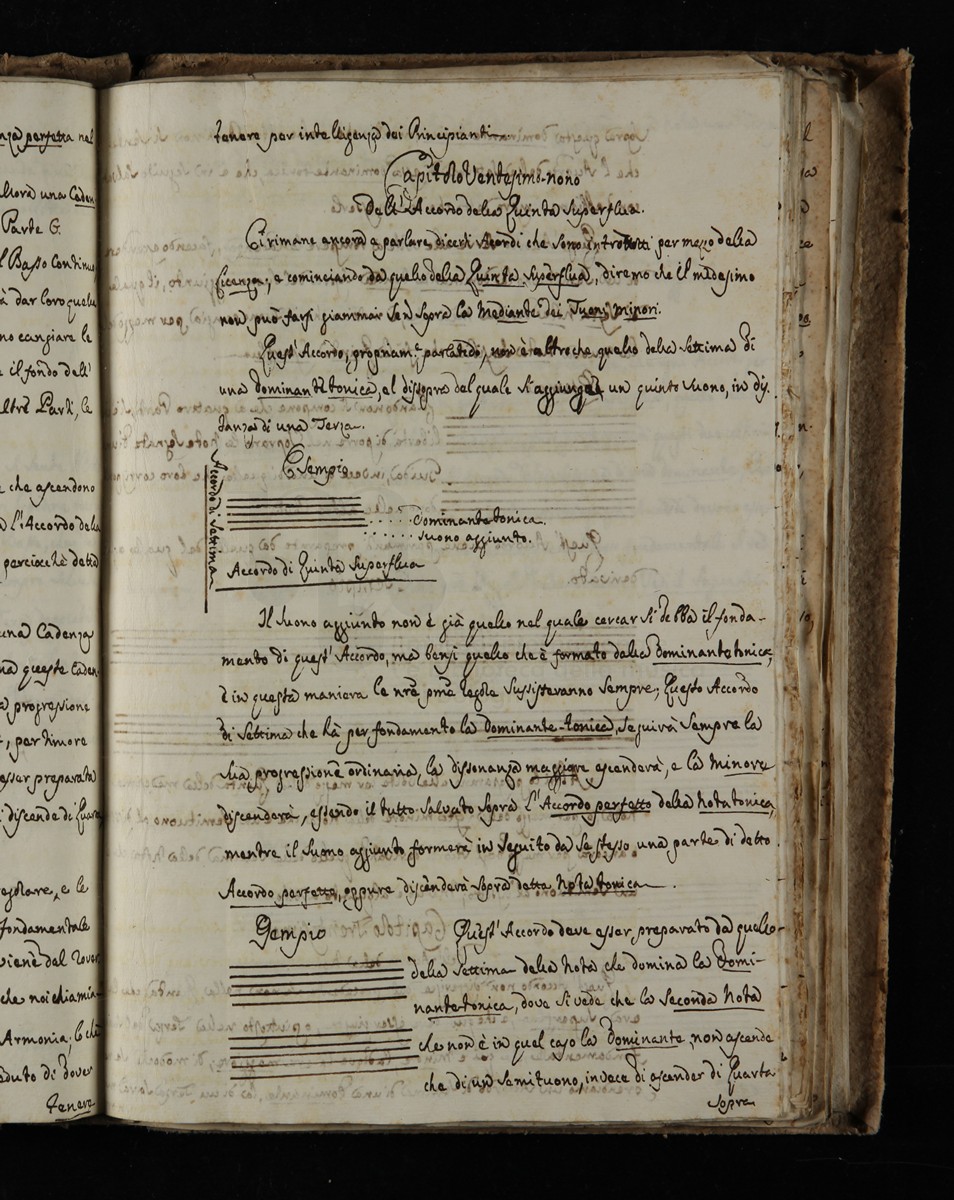 nza perfetta nel
llora una Caden
Parte G.
l Basso Continuo
à dar loro quelu
no cangiare le
e il fondo dell'
ltre Parti, le
che ascendono
a l'Accordo dela
perciocchè detta
una Cadenza
na queste Caden
a progressione
, per timore
esser preparata
i discende di Quar
egolare, e le
fondamentale
viene dal Rover
che noi chiamia
Armonia; lo che
aduto di dover
Tenere
tenere per intelligenza dei Principianti
Capitolo Ventesimo-nono
Dell'Accordo della Quinta Superflua.
Ci rimane ancora a parlare di certi Acordi che sono introdotti per mezzo della
Licenza, e cominciando da quello della Quinta Superflua, diremo che il medesimo
non può farsi giammai se n Sopra la Mediante dei Tuoni minori.
Quest'Accordo, propriam.e parlando, non è altro che quello della Settima di
una Dominante tonica, al dissopra del quale si aggiunge un quinto Suono, in dis.
tanza di una Terza.
Esempio
Accordo di Settima
Dominante tonica.
Suono aggiunto.
Accordo di Quinta Superflua
Il Suono aggiunto non è già quello nel quale cercar si debba il fonda-
mento di quest'Accordo, ma bensì quello che è formato dalla dominante tonica,
e in questa maniera le nre pme regole sussisteranno sempre; Questo Accordo
di Settima che hà per fondamento la Dominante-tonica, seguirà sempre la
sua progressione ordinaria, la dissonanza maggiore ascenderà, e la Minore
discenderà, essendo il tutto Salvato Sopra l'Accordo perfetto della Nota tonica,
mentre il Suono aggiunto formerà in seguito da se stesso una parte di detto
Accordo perfetto, oppure discenderà Sopra detta Nota tonica.
Esempio
Quest'Accordo deve esser preparato da quello
della Settima della Nota che domina la Domi-
nante tonica, dove si vede che la Seconda Nota
che non è in quel caso la Dominante, non ascende
che di un Semituono, invece di ascender di Quarta
Sopra